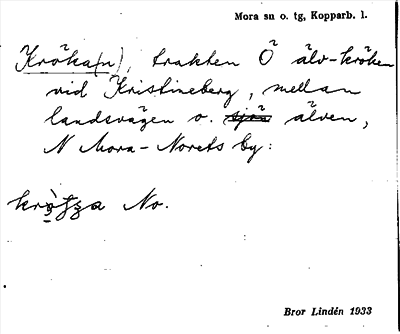 Mora sn o. tg, Kopparb. l.
Kröka(n), trakten Ö älv-kröken
vid Kristineberg, mellan
landsvägen o. älven,
N Mora-Norets by:
No.
Bror Lindén 1933